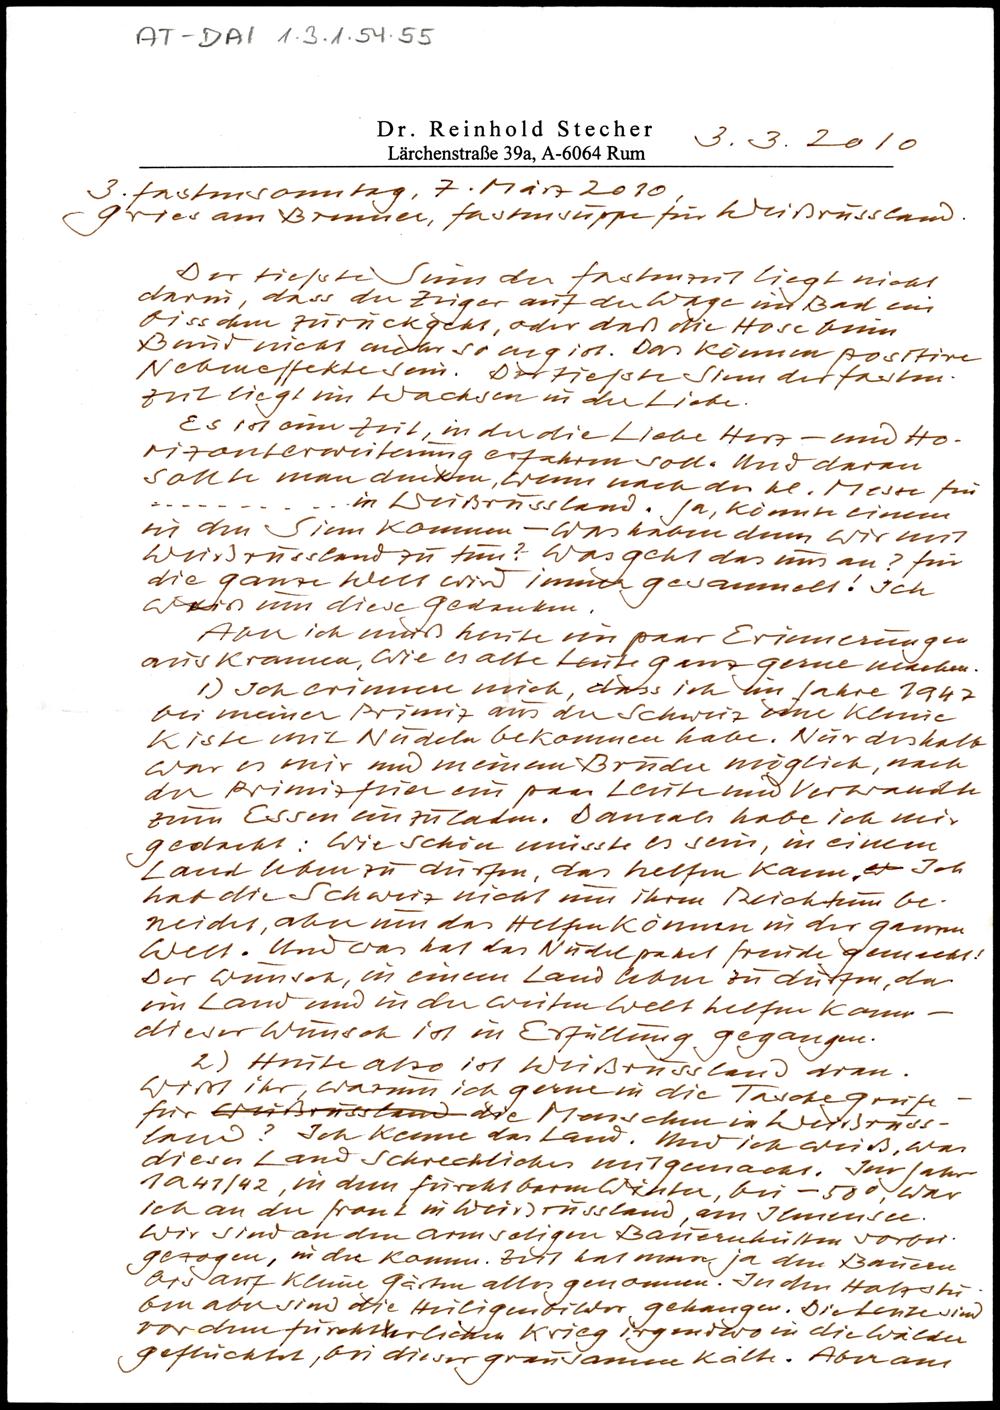 AT-DAI 1.3.1.54.55
Dr. Reinhold Stecher
Lärchenstraße 39a, A-6064 Rum
3.3.2010
3. Fastensonntag, 7. März 2010,
Gries am Brenner, Fastensuppe für Weißrussland.
Der tiefste Sinn der Fastenzeit liegt nicht
darin, dass der Zeiger auf der Wage im Bad ein
bisschen zurückgeht, oder daß die Hose beim
Bund nicht mehr so eng ist. Das können positive
Nebeneffekte sein. Der tiefste Sinn der Fasten-
zeit liegt im Wachsen in der Liebe.
Es ist eine Zeit, in der die Liebe Herz- und Ho-
rizonterweiterung erfahren soll. Und daran
sollte man denken, wenn nach der hl. Messe für
- - - - - - - - - in Weißrussland. Ja, könnte einem
in den Sinn kommen - was haben denn wir mit
Weißrussland zu tun? Was geht das uns an? Für
die ganze Welt wird immer gesammelt! Ich
weiß um diese Gedanken.
Aber ich muß heute ein paar Erinnerungen
auskramen, wie es alte Leute ganz gerne machen.
1) Ich erinnere mich, dass ich im Jahre 1947
bei meiner Primiz aus der Schweiz eine kleine
Kiste mit Nudeln bekommen habe. Nur deshalb
war es mir und meinem Bruder möglich, nach
der Primizfeier ein paar Leute und Verwandte
zum Essen einzuladen. Damals habe ich mir
gedacht: Wie schön müsste es sein, in einem
Land leben zu dürfen, das helfen kann. Ich
hab die Schweiz nicht um ihren Reichtum be-
neidet, aber um das Helfen Können in der ganzen
Welt. Und was hat das Nudelpaket Freude gemacht!
Der Wunsch, in einem Land leben zu dürfen, das
im Land und in der weiten Welt helfen kann -
dieser Wunsch ist in Erfüllung gegangen.
2) Heute also ist Weißrussland dran.
Wisst ihr, warum ich gerne in die Tasche greife -
für Weißrussland die Menschen in Weißruss-
land? Ich kenne das Land. Und ich weiß, was
dieses Land Schreckliches mitgemacht. Im Jahr
1941/42, in dem furchtbaren Winter, bei -50°, war
ich an der Front in Weißrussland, am Ilmensee.
Wir sind an den armseligen Bauernhütten vorbei-
gezogen, in der komm. Zeit hat man ja den Bauern
bis auf kleine Gärten alles genommen. In den Holzstu-
ben aber sind die Heiligenbilder gehangen. Die Leute sind
vor dem fürchterlichen Krieg irgendwo in die Wälder
geflüchtet, bei dieser grausamen Kälte. Aber am